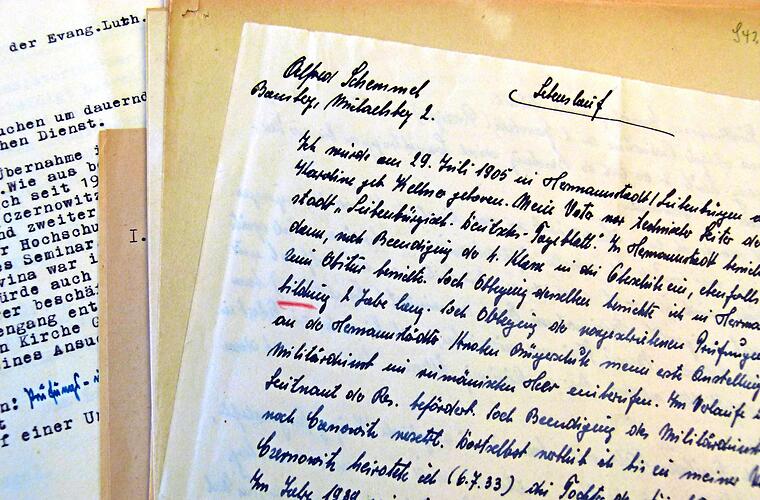 der Evang.Luth.
uchen um dauernd
hen Dienst.
bernahme
.Wie aus b
ch seit 19
Czernowitz
nd zweiter
r Hochschu
es Seminar.
wina war i
ürde auch
rer beschä
engang ent
n Kirche
ines Ansuc
n: Prüfungs-
f einer Ur
I.
Alfred Schemmel
Bamberg, Michaelsbg 2.
Lebenslauf
Ich wurde am 29. Juli 1905 in Hermannstadt/Siebenbürgen
Karoline geb Kellner geboren. Mein Vater war technischer Leiter des
stadt „Siebenbürgisch-Deutsches-Tageblatt“. In Hermannstadt besuchte
dann, nach Beendigung der 4. Klasse in die Oberschule ein, ebenfalls
zum Abitur besuchte. Nach Ablegung desselben besuchte ich in Herman
bildung 2 Jahre lang. Nach Ablegung der vorgeschriebenen Prüfungen
an der Hermannstädter Knaben Bürgerschule meine erste Anstellung
Militärdienst im rumänischen Heer einberufen. Im Verlaufe
Leutnant der Res. befördert. Nach Beendigung des Militärdienst
nach Czernowitz versetzt. Dortselbst verblieb ich bis zu meiner
Czernowitz heiratete ich (6.7.33) die Tochter
Im Jahre 1939